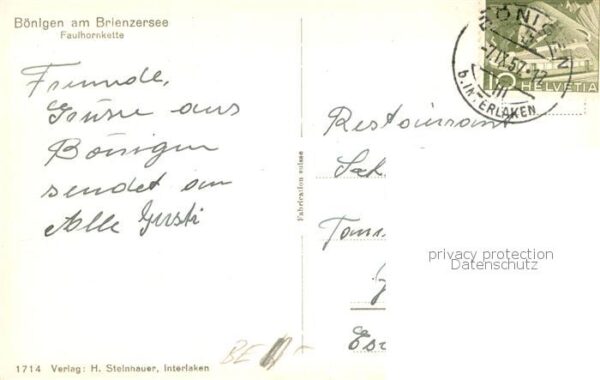 Bönigen am Brienzersee
Faulhornkette
Freunde,
Grüsse aus
Bönigen
sendet an
Alle Gusti
BÖNIGEN
-7.IX.57.-12
b. INTERLAKEN
10 HELVETIA
Restaurant
Fabrication suisse
privacy protection
Datenschutz
BE
1714 Verlag: H. Steinhauer, Interlaken